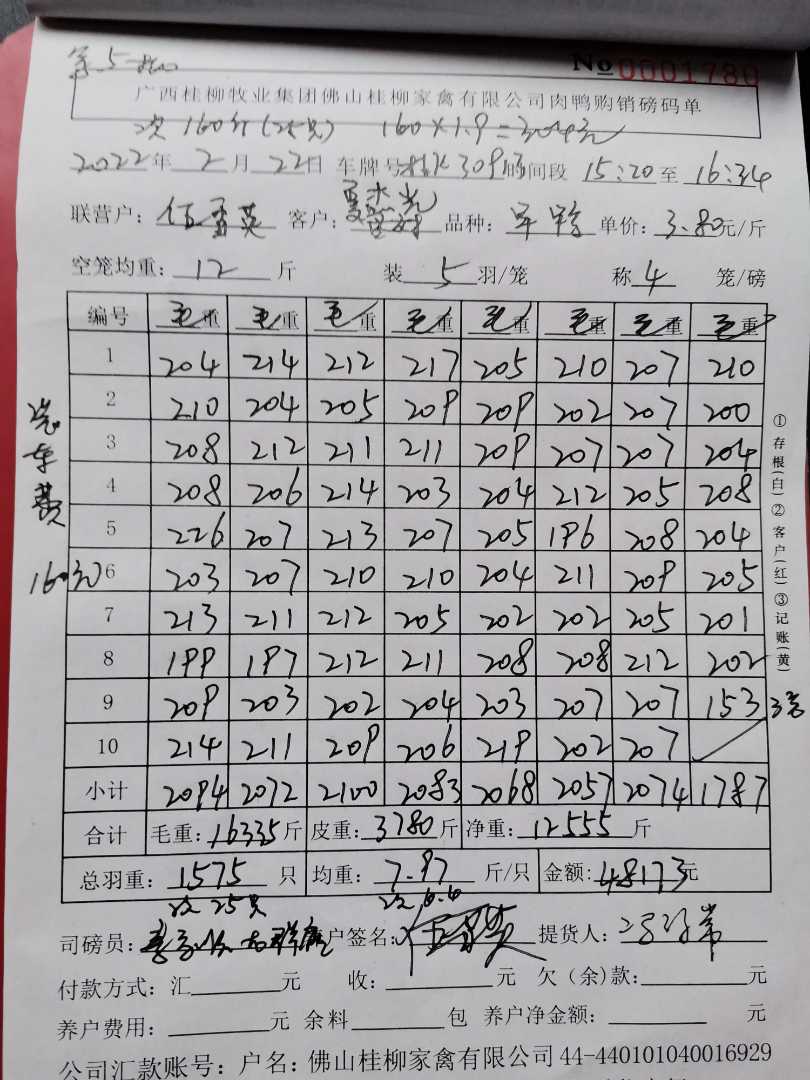 第5批
No 0001780
广西桂柳牧业集团佛山桂柳家禽有限公司肉鸭购销磅码单
次 160斤(25只) 160×1.9=304元
2022年 2月 22日 车牌号 309 时间段 15:20至 16:34
联营户: 伍雪英 客户: 品种: 单价: 3.80元/斤
空笼均重: 12 斤 装 5 羽/笼 称 4 笼/磅
编号 毛重 毛重 毛重 毛重 毛重 毛重 毛重 毛重
1 204 214 212 217 205 210 207 210
2 210 204 205 209 209 202 207 200
3 208 212 211 211 209 207 207 204
4 208 206 214 203 204 212 205 208
5 226 207 213 207 205 196 208 204
6 203 207 210 210 204 211 209 205
7 213 211 212 205 202 202 205 201
8 199 197 212 211 208 208 212 202
9 209 203 202 204 203 207 207 153 3笼
10 214 211 209 206 219 202 207
小计 2094 2072 2100 2083 2068 2057 2074 1787
合计 毛重: 16335斤 皮重: 3780斤 净重: 12555 斤
总羽重: 1575 只 均重: 7.97 斤/只 金额: 48173元
次 25只 次 6.4
司磅员: 户签名: 提货人:
付款方式: 汇 元 收: 元 欠（余）款: 元
养户费用: 元 余料 包 养户净金额: 元
公司汇款账号: 户名: 佛山桂柳家禽有限公司 44-440101040016929
洗车费
160元
①存根(白)②客户(红)③记账(黄)